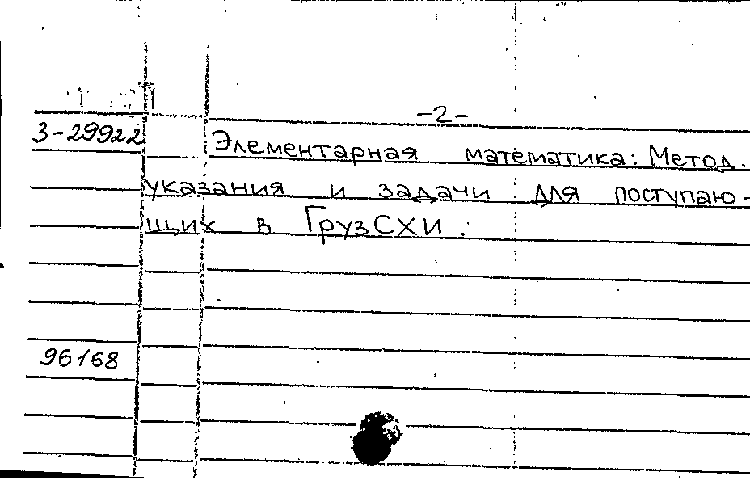 -2-
3-29922 Элементарная математика: Метод.
указания и задачи для поступаю-
щих в ГрузСХИ.
96168